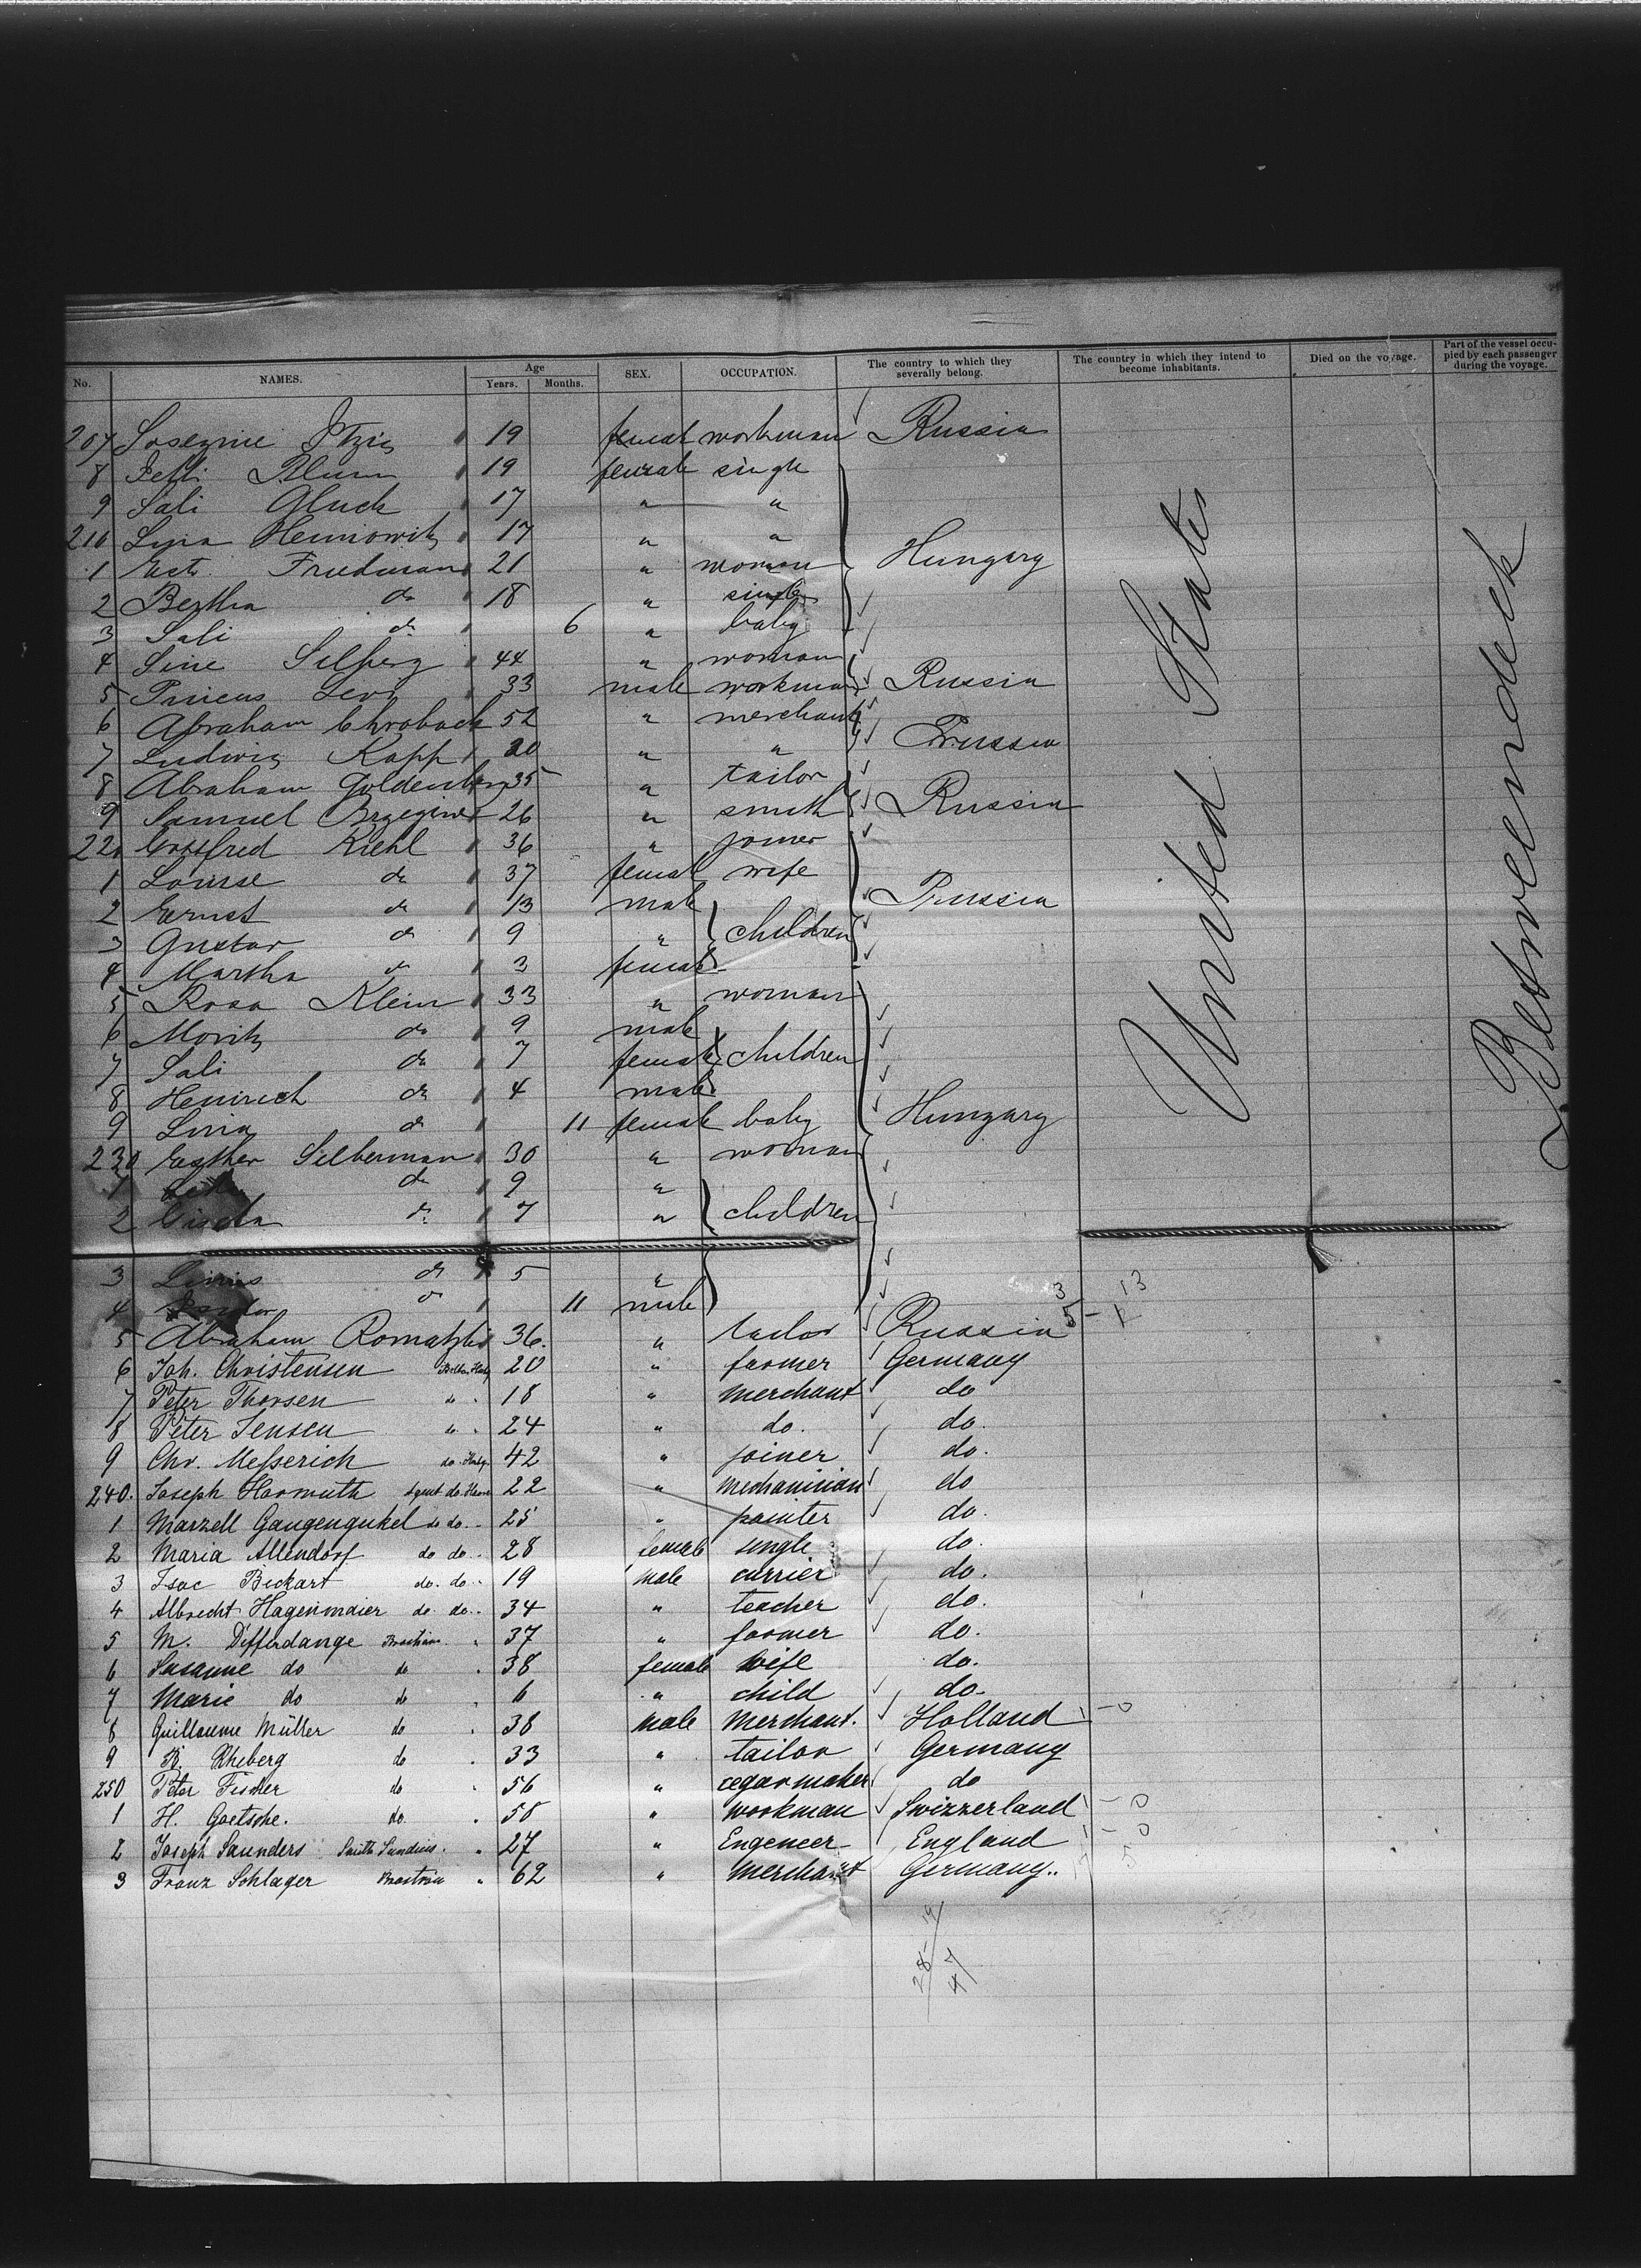 No. NAMES. Age Years. Months. SEX. OCCUPATION. The country to which they severally belong. The country in which they intend to become inhabitants. Died on the voyage. Part of the vessel occupied by each passenger during the voyage.
207 19 workman Russia
8 Blum 19 female single
9 Sali Gluck 17 " "
210 17 " "
1 Friedman 21 " woman Hungary
2 Bertha do 18 " single
3 Sali do 6 " baby
4 44 " woman
5 33 male workman Russia
6 Abraham Chroback 52 " merchant
7 Ludwig Kapp 20 " " Prussia
8 Abraham Goldenberg 35 " tailor
9 Samuel 26 " smith Russia
220 Gottfred Kiehl 36 " joiner
1 Louise do 37 female wife
2 Ernst do 13 male Prussia
3 Gustav do 9 " children
4 Martha do 3 female
5 Rosa Klein 33 " woman
6 Moritz do 9 male
7 Sali do 7 female children
8 Heinrich do 4 male
9 Lina do 11 female baby Hungary
230 Esther Silberman 30 " woman
1 do 9 "
2 Gisela do 7 " children
3 do 5 "
4 do 11 male
5 Abraham 36. " tailor Russia
6 Joh. Christensen 20 " farmer Germany
7 Peter Thorsen do 18 " merchant do
8 Peter Jensen do 24 " do. do.
9 Chr. Messerich do 42 " joiner do.
240. Joseph Harmuth Agent do Havre 22 " mechanician do
1 Marzell Gangengukel do do 25 " painter do.
2 Maria Allendorf do do 28 female single do.
3 Isac Bickart do. do 19 male currier do.
4 Albrecht Hagenmaier do do 34 " teacher do.
5 M. Differdange 37 " farmer do.
6 Susanne do do 38 female wife do.
7 Marie do do 6 " child do.
8 Guillaume Müller do 38 male merchant. Holland
9 Rheberg do 33 " tailor Germany
250 Peter Fischer do 56 " cegarmaker do
1 H. Goetsche. do. 58 " workman Swizzerland
2 Joseph Saunders 27 " Engeneer England
3 Franz Schlager 62 " merchant Germany..
United States
Betweendeck
28-19
47